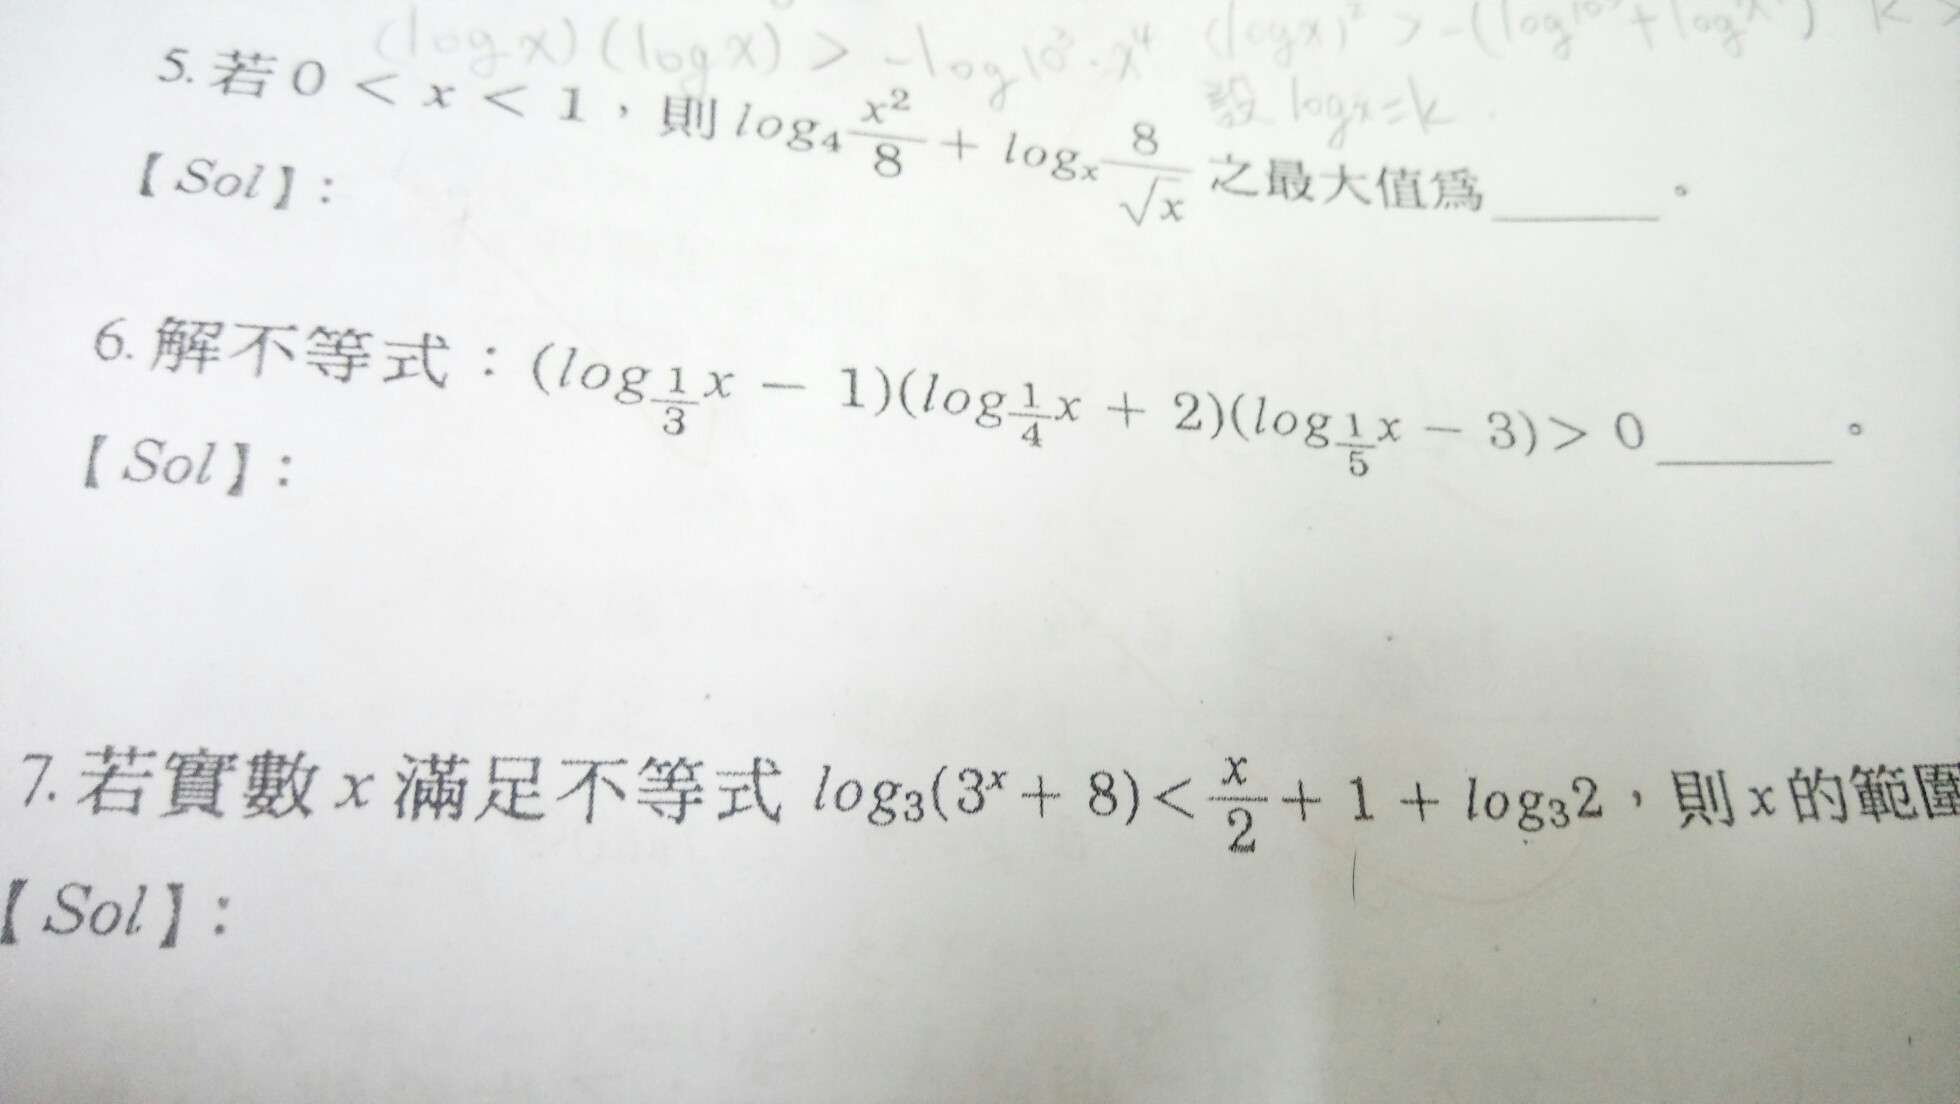 (log x)(log x) > -log 10³·x⁴ (log x)² > -(log 10³ + log x⁴) k >
5. 若 0 < x < 1，則 log₄ x²/8 + logₓ 8/√x 之最大值為______。
設 log x = k
【Sol】:
6. 解不等式：(log_{1/3} x - 1)(log_{1/4} x + 2)(log_{1/5} x - 3) > 0______。
【Sol】:
7. 若實數 x 滿足不等式 log₃(3ˣ + 8) < x/2 + 1 + log₃2，則 x 的範圍
【Sol】: